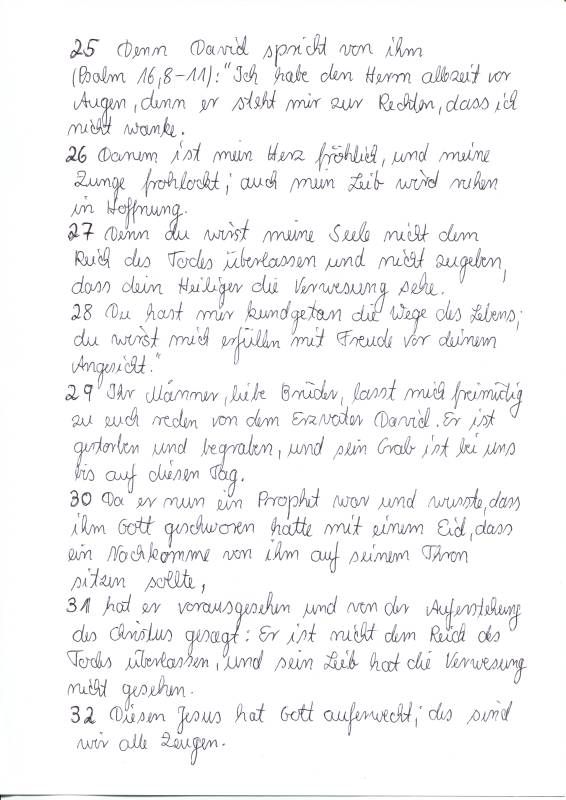 25 Denn David spricht von ihm
(Psalm 16,8-11): "Ich habe den Herrn allezeit vor
Augen, denn er steht mir zur Rechten, dass ich
nicht wanke.
26 Darum ist mein Herz fröhlich, und meine
Zunge frohlockt; auch mein Leib wird ruhen
in Hoffnung.
27 Denn du wirst meine Seele nicht dem
Reich des Todes überlassen und nicht zugeben,
dass dein Heiliger die Verwesung sehe.
28 Du hast mir kundgetan die Wege des Lebens;
du wirst mich erfüllen mit Freude vor deinem
Angesicht."
29 Ihr Männer, liebe Brüder, lasst mich freimütig
zu euch reden von dem Erzvater David. Er ist
gestorben und begraben, und sein Grab ist bei uns
bis auf diesen Tag.
30 Da er nun ein Prophet war und wusste, dass
ihm Gott geschworen hatte mit einem Eid, dass
ein Nachkomme von ihm auf seinem Thron
sitzen sollte,
31 hat er vorausgesehen und von der Auferstehung
des Christus gesagt: Er ist nicht dem Reich des
Todes überlassen, und sein Leib hat die Verwesung
nicht gesehen.
32 Diesen Jesus hat Gott auferweckt; des sind
wir alle Zeugen.